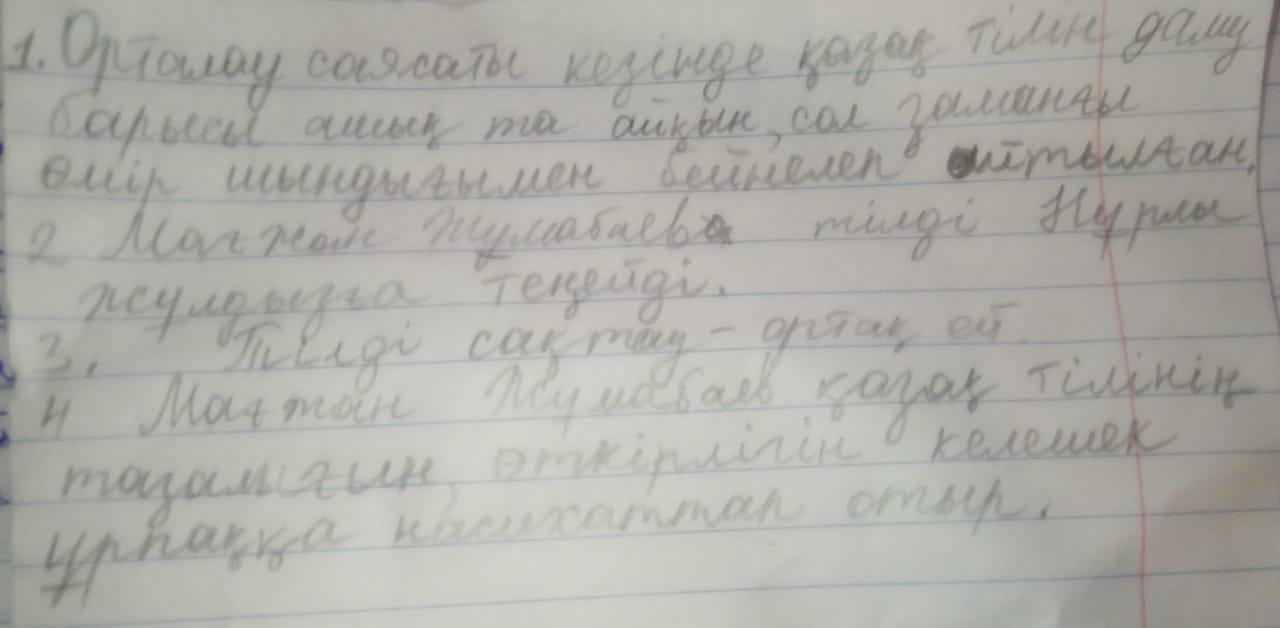 1. Орталау саясаты кезінде қазақ тілін даму
барысы ашық та айқын, сол заманғы
өмір шындығымен бейнелеп айтылған.
2 Мағжан Жұмабаев тілді Нұрлы
жұлдызға теңейді.
3. Тілді сақтау – ортақ ой
4 Мағжан Жұмабаев қазақ тілінің
тазалығын, өткірлігін келешек
ұрпаққа насихаттап отыр.